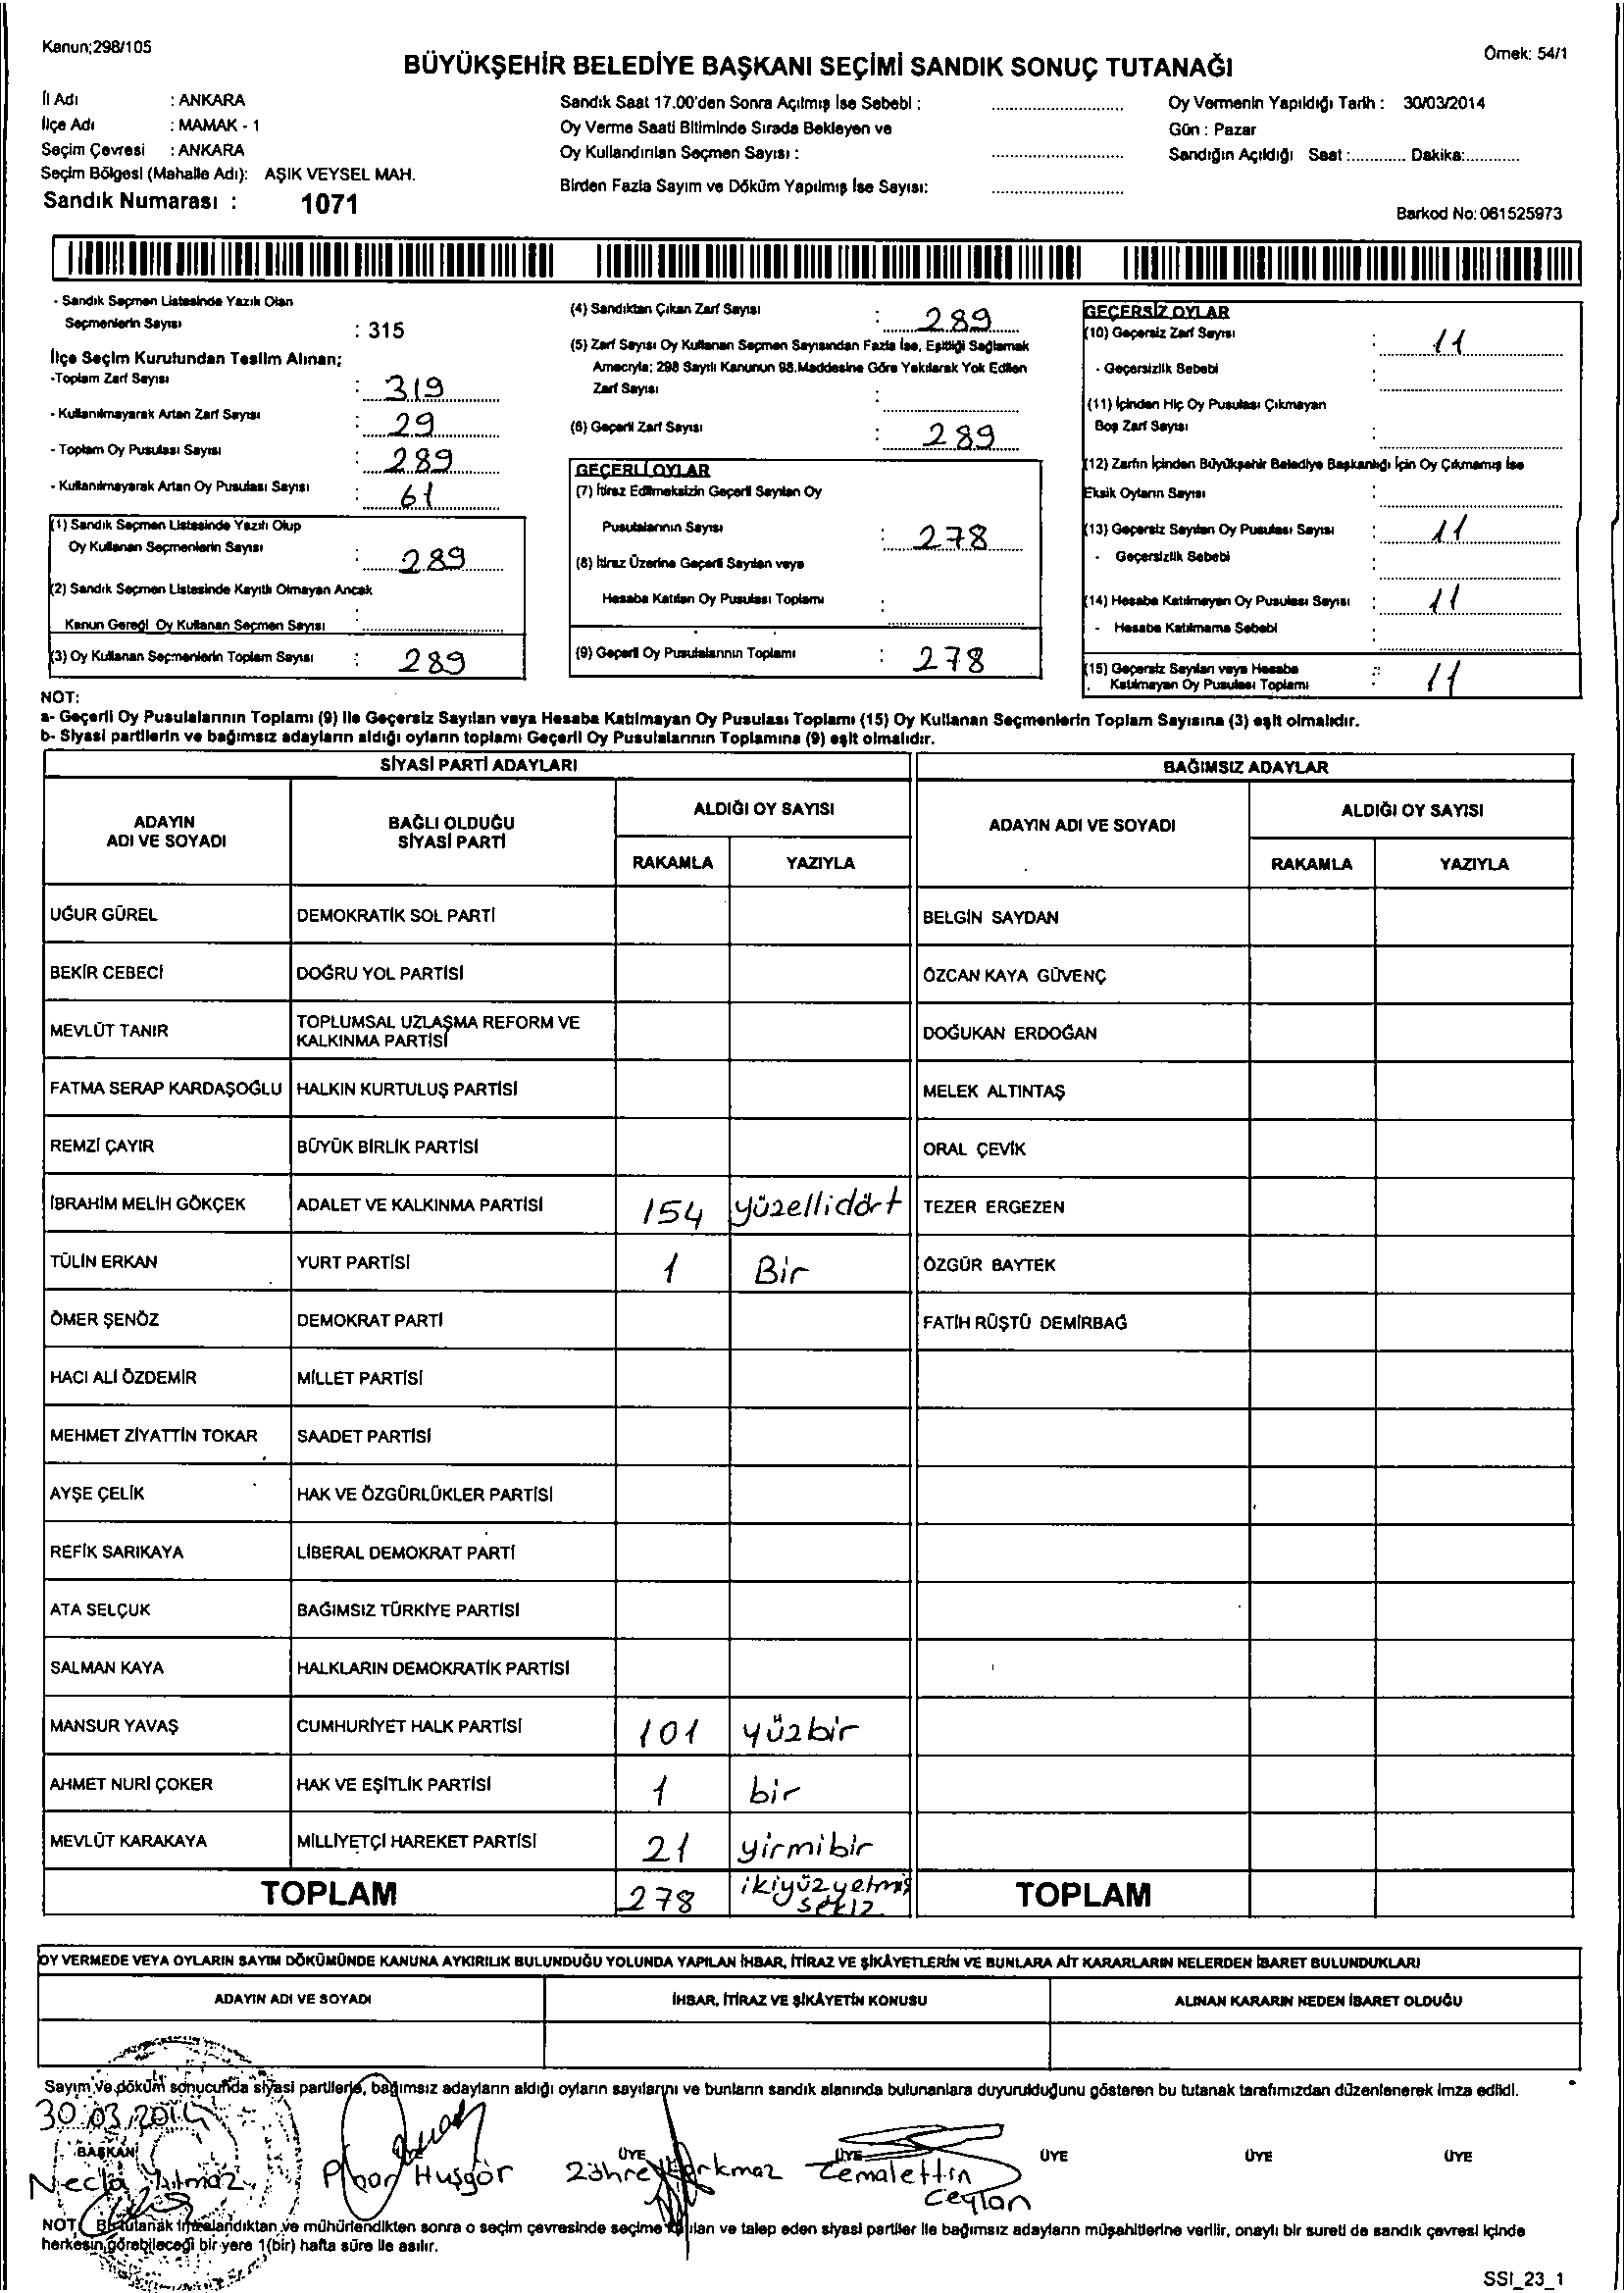 Kanun;298/105
Örnek: 54/1
BÜYÜKŞEHİR BELEDİYE BAŞKANI SEÇİMİ SANDIK SONUÇ TUTANAĞI
İl Adı : ANKARA
İlçe Adı : MAMAK - 1
Seçim Çevresi : ANKARA
Seçim Bölgesi (Mahalle Adı): AŞIK VEYSEL MAH.
Sandık Numarası : 1071
Sandık Saat 17.00'den Sonra Açılmış İse Sebebi :
Oy Verme Saati Bitiminde Sırada Bekleyen ve
Oy Kullandırılan Seçmen Sayısı :
Birden Fazla Sayım ve Döküm Yapılmış İse Sayısı:
Oy Vermenin Yapıldığı Tarih : 30/03/2014
Gün : Pazar
Sandığın Açıldığı Saat :............ Dakika:............
Barkod No: 061525973
- Sandık Seçmen Listesinde Yazılı Olan
Seçmenlerin Sayısı : 315
İlçe Seçim Kurulundan Teslim Alınan;
-Toplam Zarf Sayısı : 319
- Kullanılmayarak Artan Zarf Sayısı : 29
- Toplam Oy Pusulası Sayısı : 289
- Kullanılmayarak Artan Oy Pusulası Sayısı : 61
(1) Sandık Seçmen Listesinde Yazılı Olup
Oy Kullanan Seçmenlerin Sayısı : 289
(2) Sandık Seçmen Listesinde Kayıtlı Olmayan Ancak
Kanun Gereği Oy Kullanan Seçmen Sayısı :
(3) Oy Kullanan Seçmenlerin Toplam Sayısı : 289
(4) Sandıktan Çıkan Zarf Sayısı : 289
(5) Zarf Sayısı Oy Kullanan Seçmen Sayısından Fazla İse, Eşitliği Sağlamak
Amacıyla; 298 Sayılı Kanunun 98.Maddesine Göre Yakılarak Yok Edilen
Zarf Sayısı :
(6) Geçerli Zarf Sayısı : 289
GEÇERLİ OYLAR
(7) İtiraz Edilmeksizin Geçerli Sayılan Oy
Pusulalarının Sayısı : 278
(8) İtiraz Üzerine Geçerli Sayılan veya
Hesaba Katılan Oy Pusulası Toplamı :
(9) Geçerli Oy Pusulalarının Toplamı : 278
GEÇERSİZ OYLAR
(10) Geçersiz Zarf Sayısı : 11
- Geçersizlik Sebebi
(11) İçinden Hiç Oy Pusulası Çıkmayan
Boş Zarf Sayısı :
(12) Zarfın İçinden Büyükşehir Belediye Başkanlığı İçin Oy Çıkmamış İse
Eksik Oyların Sayısı :
(13) Geçersiz Sayılan Oy Pusulası Sayısı : 11
- Geçersizlik Sebebi
(14) Hesaba Katılmayan Oy Pusulası Sayısı : 11
- Hesaba Katılmama Sebebi
(15) Geçersiz Sayılan veya Hesaba
Katılmayan Oy Pusulası Toplamı : 11
NOT:
a- Geçerli Oy Pusulalarının Toplamı (9) ile Geçersiz Sayılan veya Hesaba Katılmayan Oy Pusulası Toplamı (15) Oy Kullanan Seçmenlerin Toplam Sayısına (3) eşit olmalıdır.
b- Siyasi partilerin ve bağımsız adayların aldığı oyların toplamı Geçerli Oy Pusulalarının Toplamına (9) eşit olmalıdır.
SİYASİ PARTİ ADAYLARI BAĞIMSIZ ADAYLAR
ADAYIN ADI VE SOYADI
BAĞLI OLDUĞU SİYASİ PARTİ
ALDIĞI OY SAYISI
RAKAMLA YAZIYLA
ADAYIN ADI VE SOYADI
ALDIĞI OY SAYISI
RAKAMLA YAZIYLA
UĞUR GÜREL DEMOKRATİK SOL PARTİ BELGİN SAYDAN
BEKİR CEBECİ DOĞRU YOL PARTİSİ ÖZCAN KAYA GÜVENÇ
MEVLÜT TANIR TOPLUMSAL UZLAŞMA REFORM VE KALKINMA PARTİSİ DOĞUKAN ERDOĞAN
FATMA SERAP KARDAŞOĞLU HALKIN KURTULUŞ PARTİSİ MELEK ALTINTAŞ
REMZİ ÇAYIR BÜYÜK BİRLİK PARTİSİ ORAL ÇEVİK
İBRAHİM MELİH GÖKÇEK ADALET VE KALKINMA PARTİSİ 154 yüzellidört TEZER ERGEZEN
TÜLİN ERKAN YURT PARTİSİ 1 Bir ÖZGÜR BAYTEK
ÖMER ŞENÖZ DEMOKRAT PARTİ FATİH RÜŞTÜ DEMİRBAĞ
HACI ALİ ÖZDEMİR MİLLET PARTİSİ
MEHMET ZİYATTİN TOKAR SAADET PARTİSİ
AYŞE ÇELİK HAK VE ÖZGÜRLÜKLER PARTİSİ
REFİK SARIKAYA LİBERAL DEMOKRAT PARTİ
ATA SELÇUK BAĞIMSIZ TÜRKİYE PARTİSİ
SALMAN KAYA HALKLARIN DEMOKRATİK PARTİSİ
MANSUR YAVAŞ CUMHURİYET HALK PARTİSİ 101 yüzbir
AHMET NURİ ÇOKER HAK VE EŞİTLİK PARTİSİ 1 bir
MEVLÜT KARAKAYA MİLLİYETÇİ HAREKET PARTİSİ 21 yirmibir
TOPLAM 278 ikiyüzyetmiş sekiz TOPLAM
OY VERMEDE VEYA OYLARIN SAYIM DÖKÜMÜNDE KANUNA AYKIRILIK BULUNDUĞU YOLUNDA YAPILAN İHBAR, İTİRAZ VE ŞİKÂYETLERİN VE BUNLARA AİT KARARLARIN NELERDEN İBARET BULUNDUKLARI
ADAYIN ADI VE SOYADI İHBAR, İTİRAZ VE ŞİKÂYETİN KONUSU ALINAN KARARIN NEDEN İBARET OLDUĞU
Sayım ve döküm sonucunda siyasi partilerle, bağımsız adayların aldığı oyların sayılarını ve bunların sandık alanında bulunanlara duyurulduğunu gösteren bu tutanak tarafımızdan düzenlenerek imza edildi.
30.03.2014
BAŞKAN ÜYE ÜYE ÜYE ÜYE ÜYE
Necla Yılmaz Pınar Huşgör Zöhre Korkmaz Cemalettin
Ceylan
NOT: Bu tutanak imzalandıktan ve mühürlendikten sonra o seçim çevresinde seçime katılan ve talep eden siyasi partiler ile bağımsız adayların müşahitlerine verilir, onaylı bir sureti de sandık çevresi içinde
herkesin görebileceği bir yere 1(bir) hafta süre ile asılır.
SSI_23_1